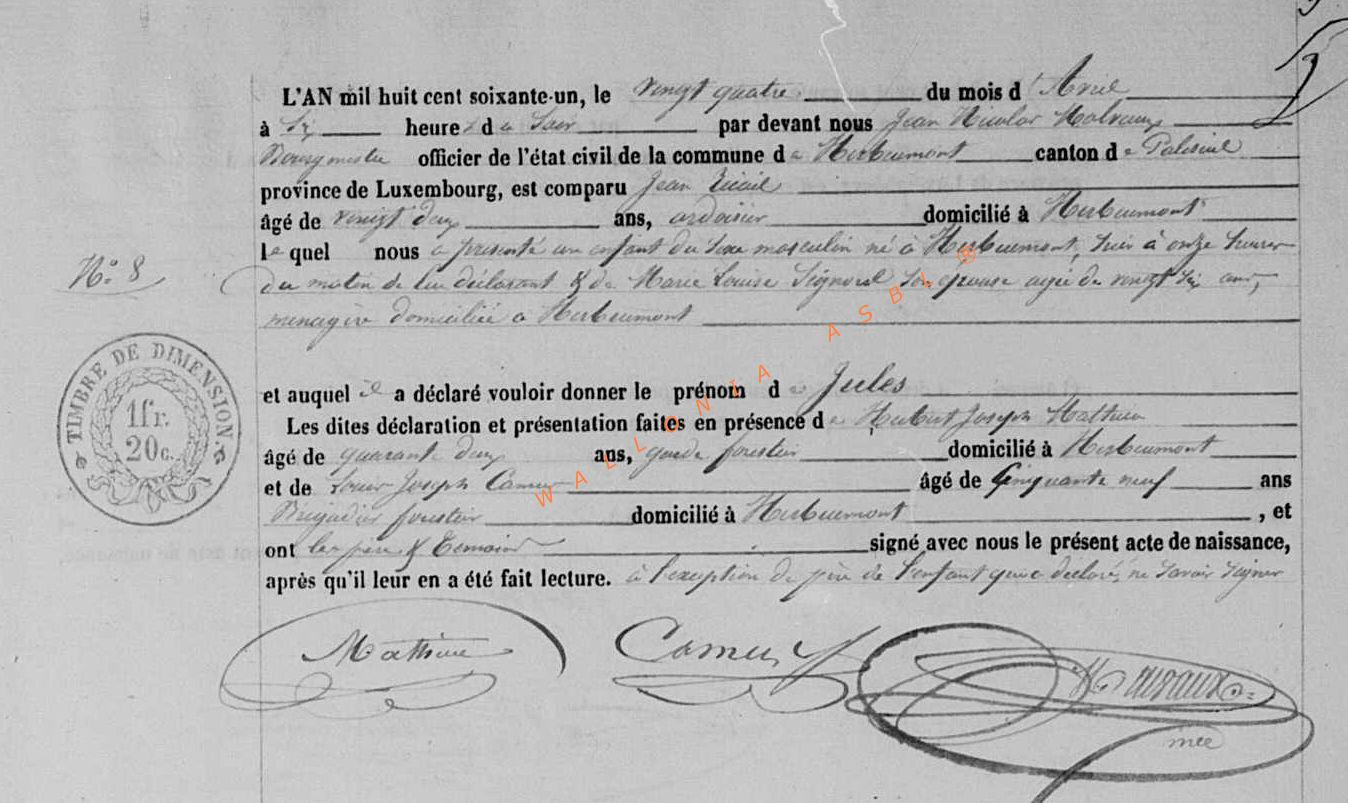 L'AN mil huit cent soixante-un, le vingt quatre du mois d'Avril
à Six heures du Soir par devant nous Jean Nicolas
Bourgmestre officier de l'état civil de la commune de Herbeumont canton de Paliseul
province de Luxembourg, est comparu Jean
âgé de vingt deux ans, ardoisier domicilié à Herbeumont
lequel nous a présenté un enfant du sexe masculin né à Herbeumont, à onze heures
du matin de lui déclarant & de Marie Louise son épouse agée de vingt six ans,
menagère domiciliée a Herbeumont
N.º 8
TIMBRE DE DIMENSION.
1fr.
20c.
et auquel il a déclaré vouloir donner le prénom de Jules
Les dites déclaration et présentation faites en présence de Hubert Joseph Mathieu
âgé de quarante deux ans, garde forestier domicilié à Herbeumont
et de Louis Joseph Camus âgé de Cinquante neuf ans
Brigadier forestier domicilié à Herbeumont, et
ont les père & Temoins signé avec nous le présent acte de naissance,
après qu'il leur en a été fait lecture. à l'exception de père de l'enfant qui a déclaré ne savoir signer
Mathieu Camus
WALLONIA ASBL ®